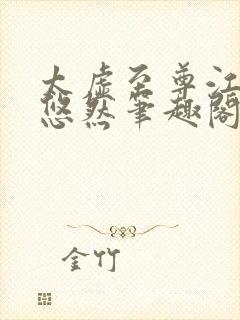 太虚至尊江
悠然笔趣阁
金竹